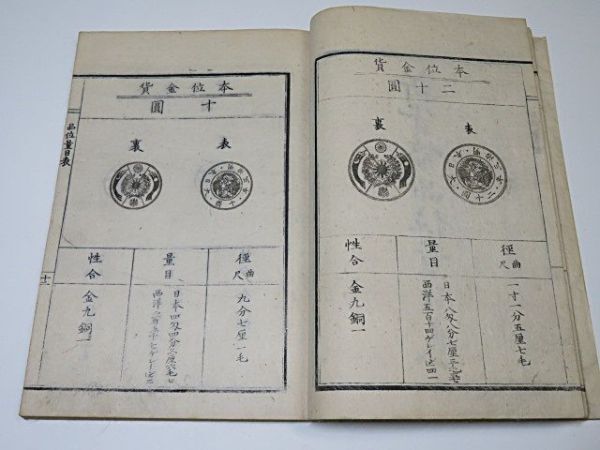 本位金貨
二十圓
表
裏
徑 曲尺
一寸一分五厘七毛
量目
日本八匁八分七厘
西洋五百十四ゲレイン
性合
金九銅一
本位金貨
十圓
表
裏
徑 曲尺
九分七厘一毛
量目
日本四匁四分
西洋二百五十七ゲレイン
性合
金九銅一
品位量目表
十一